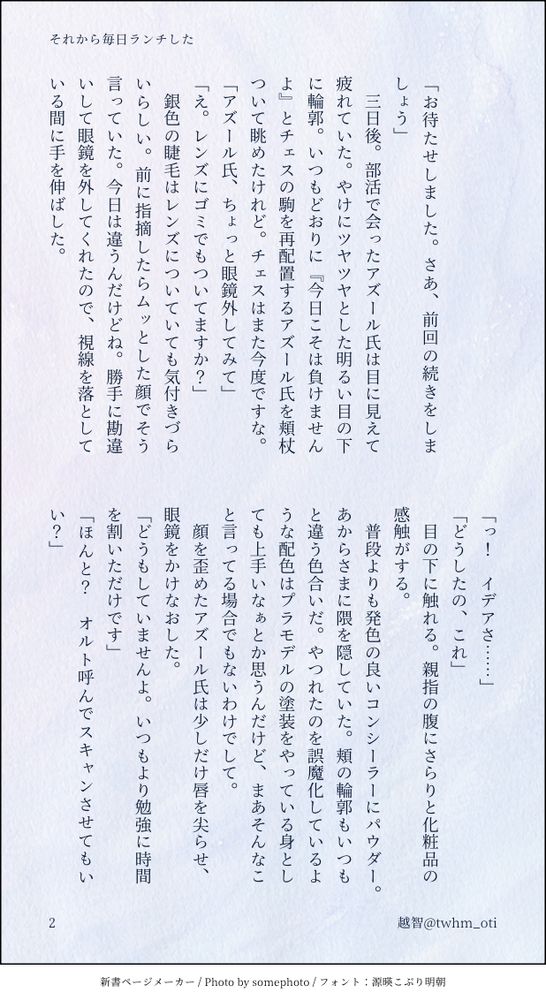 それから毎日ランチした
「お待たせしました。さあ、前回の続きをしま
しょう」
　三日後。部活で会ったアズール氏は目に見えて
疲れていた。やけにツヤツヤとした明るい目の下
に輪郭。いつもどおりに『今日こそは負けません
よ』とチェスの駒を再配置するアズール氏を頬杖
ついて眺めたけれど。チェスはまた今度ですな。
「アズール氏、ちょっと眼鏡外してみて」
「え。レンズにゴミでもついてますか？」
　銀色の睫毛はレンズについていても気付きづら
いらしい。前に指摘したらムッとした顔でそう
言っていた。今日は違うんだけどね。勝手に勘違
いして眼鏡を外してくれたので、視線を落として
いる間に手を伸ばした。
「っ！　イデアさ……」
「どうしたの、これ」
　目の下に触れる。親指の腹にさらりと化粧品の
感触がする。
　普段よりも発色の良いコンシーラーにパウダー。
あからさまに隈を隠していた。頬の輪郭もいつも
と違う色合いだ。やつれたのを誤魔化しているよ
うな配色はプラモデルの塗装をやっている身とし
ても上手いなぁとか思うんだけど、まあそんなこ
と言ってる場合でもないわけでして。
　顔を歪めたアズール氏は少しだけ唇を尖らせ、
眼鏡をかけなおした。
「どうもしていませんよ。いつもより勉強に時間
を割いただけです」
「ほんと？　オルト呼んでスキャンさせてもい
い？」
2
越智@twhm_oti
新書ページメーカー / Photo by somephoto / フォント：源暎こぶり明朝